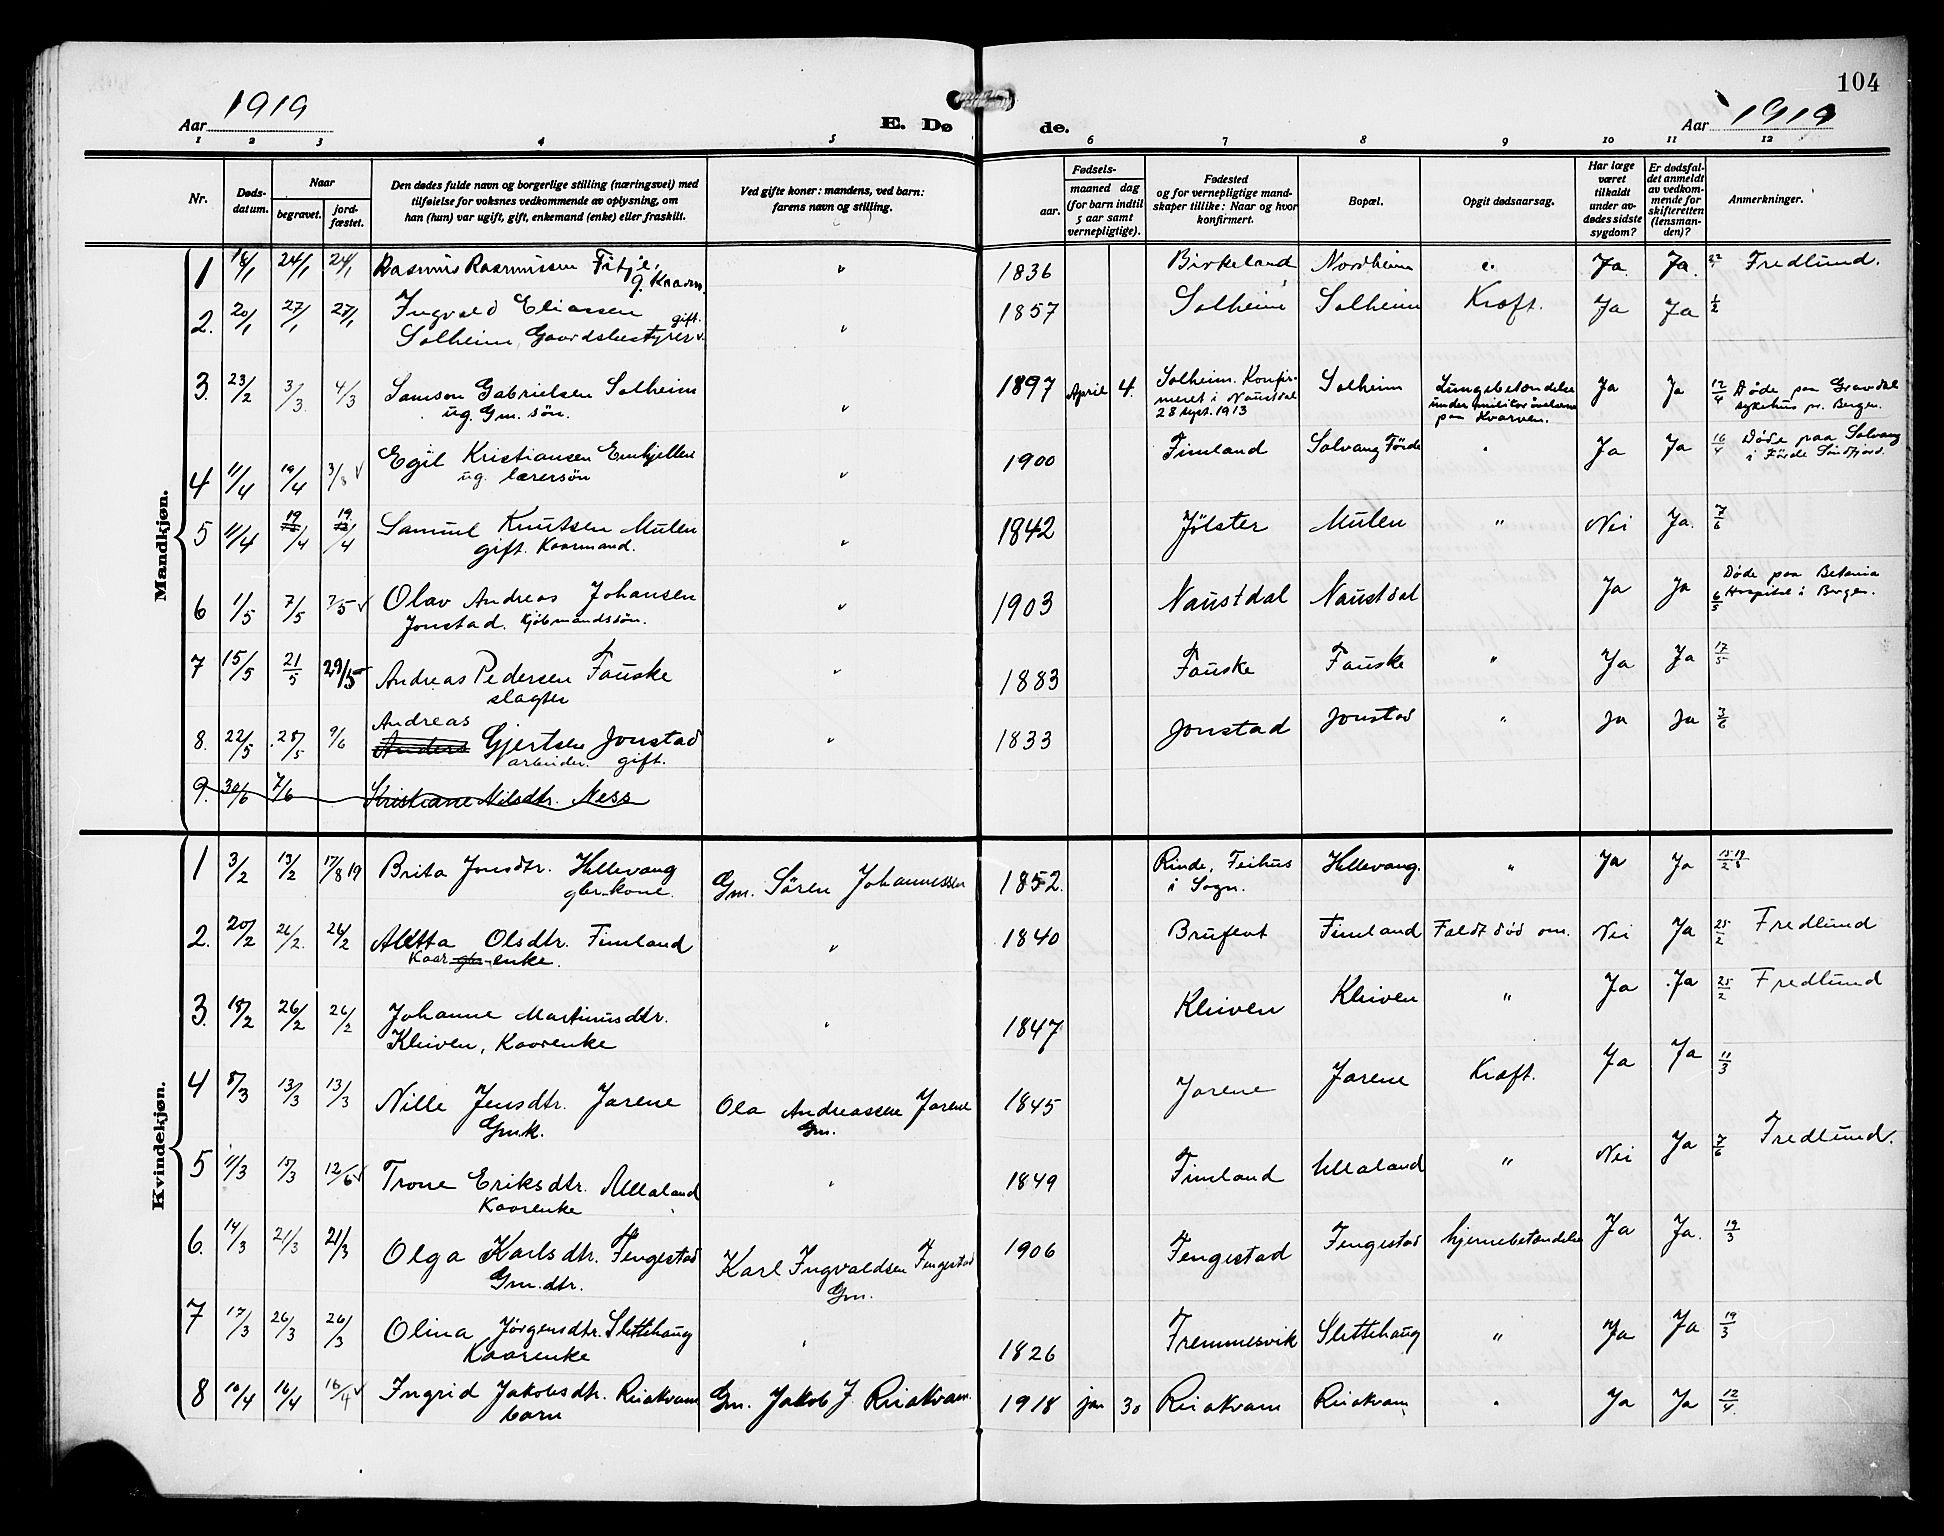 104
Aar 1919
E. Dø
de.
Aar 1919
1 2 3 4 5 6 7 8 9 10 11 12
Nr.
Døds-
datum.
Naar
begravet.
jord-
fæstet.
Den dødes fulde navn og borgerlige stilling (næringsvei) med
tilføielse for voksnes vedkommende av oplysning, om
han (hun) var ugift, gift, enkemand (enke) eller fraskilt.
Ved gifte koner: mandens, ved barn:
farens navn og stilling.
aar.
Fødsels-
maaned dag
(for barn indtil
5 aar samt
vernepligtige).
Fødested
og for vernepligtige mand-
skaper tillike: Naar og hvor
konfirmert.
Bopæl.
Opgit dødsaarsag.
Har læge
været
tilkaldt
under av-
dødes sidste
sygdom?
Er dødsfal-
det anmeldt
av vedkom-
mende for
skifteretten
(lensman-
den)?
Anmerkninger.
Mandkjøn.
1 18/1 24/1 24/1 Rasmus Rasmussen Fitje, " 1836 Birkeland Nordheim Ja. Ja. Fredlund.
g. Kaarm.
2. 20/1 27/1 27/1 Ingvald Eliassen " 1857 Solheim Solheim Kræft. Ja Ja 1/2
gift.
Solheim, Gaardsbestyrer
3. 23/2 3/3 4/3 Samson Gabrielsen Solheim " 1897 April 4. Solheim. Konfir- Solheim Lungebetændelse Ja Ja 12/4 Døde paa Gravdal
ug. Gm. søn. meret i Naustdal under militærøvelserne sykehus pr. Bergen.
28 sept. 1913 paa Kvarven.
4 11/4 19/4 3/8 v Egil Kristiansen Emhjellen " 1900 Fimland Solvang Førde " Ja Ja 16/4 Døde paa Solvang
ug. lærersøn i Førde Søndfjord.
5 11/4 19/4 19/4 Samuel Knutsen Mulen " 1842 Jølster Mulen " Nei Ja. 7/6
gift. Kaarmand.
6 1/5 7/5 7/5 v Olav Andreas Johansen " 1903 Naustdal Naustdal Ja Ja 6/5 Døde paa Betania
Jonstad. Kjøbmandssøn. Hospital i Bergen.
7 15/5 21/5 29/5 Andreas Pedersen Fauske " 1883 Fauske Fauske " Ja Ja 17/5
slagter
Andreas
8. 22/5 28/5 9/6 Anders Gjertsen Jonstad " 1833 Jonstad Jonstad " Ja Ja 3/6
arbeider. gift.
9. 30/6 7/6 Kristiane Nilsdtr. Ness
Kvindekjøn.
1 3/2 13/2 17/8 19 Brita Jonsdtr. Hellevang Gm. Søren Johannessen 1852. Rinde, Feihus Hellevang. " Ja Ja
gbr.kone. i Sogn.
2. 20/2 26/2. 26/2 Aletta Olsdtr. Fimland " 1840 Bruflot Fimland Faldt død om. Nei Ja 25/2 Fredlund
Kaar gbr enke.
3. 18/2 26/2 26/2 Johanne Martinusdtr. " 1847 Kleiven Kleiven " Ja Ja 25/2 Fredlund
Kleiven, Kaarenke
4 8/3 13/3 13/3 Nille Jensdtr. Jarene Ola Andreassen Jarene 1845 Jarene Jarene Kræft. Ja Ja 11/3
Gmk. Gm.
5 11/3 15/3 12/6 v Trone Eriksdtr. Ullaland " 1849 Fimland Ullaland " Nei Ja 7/6 Fredlund.
Kaarenke
6. 14/3 21/3 21/3 Olga Karlsdtr. Fengestad Karl Ingvaldsen Fengestad 1906 Fengestad Fengestad hjernebetændelse Ja Ja. 19/3
Gm.dtr. Gm.
7 17/3 26/3 26/3 Olina Jørgensdtr. Slettehaug " 1826 Fremmesvik Slettehaug " Ja Ja 19/3
Kaarenke
8 10/4 16/4 18/4 v Ingrid Jakobsdtr. Reiakvam Gm. Jakob J. Reiakvam. 1918 jan 30 Reiakvam Reiakvam " Ja Ja 12/4.
barn